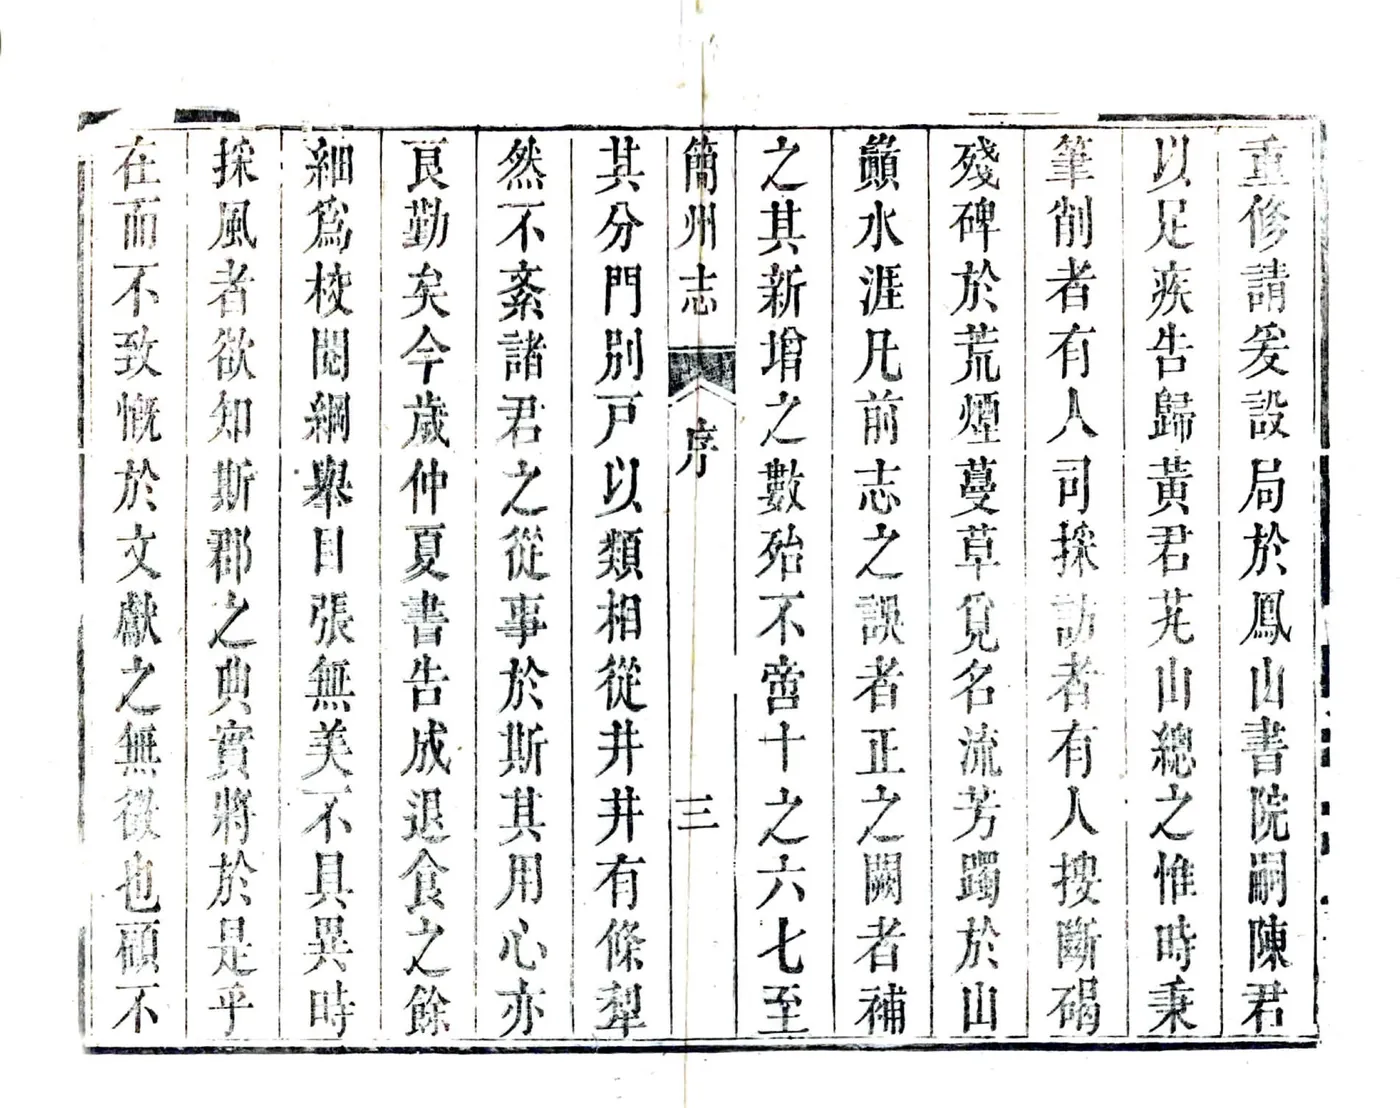 重修請爰設局於鳳山書院嗣陳君
以足疾告歸黃君芃山總之惟時秉
筆削者有人司採訪者有人搜斷碣
殘碑於荒煙蔓草覓名流芳躅於山
巔水涯凡前志之誤者正之闕者補
之其新增之數殆不啻十之六七至
簡州志
序
三
其分門別戸以類相從井井有條犁
然不紊諸君之從事於斯其用心亦
良勤矣今歲仲夏書告成退食之餘
細爲校閱綱舉目張無美不具異時
採風者欲知斯郡之典實將於是乎
在而不致慨於文獻之無徵也顧不